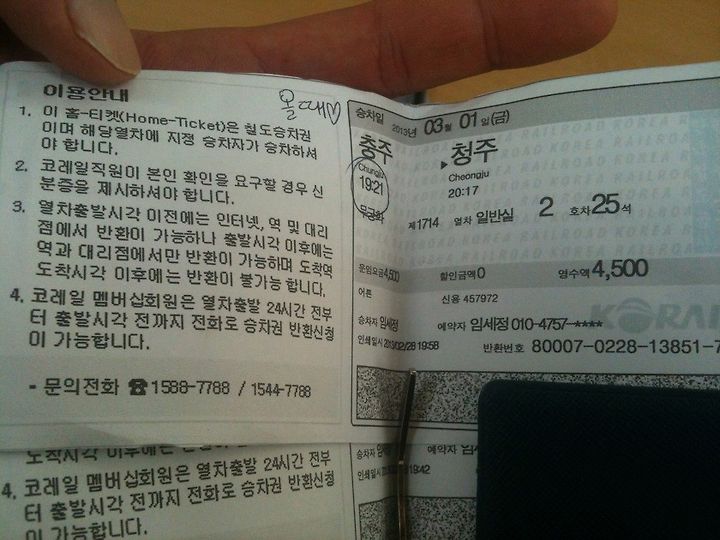 이용안내
올때♡
1. 이 홈-티켓(Home-Ticket)은 철도승차권
이며 해당열차에 지정 승차자가 승차하셔
야 합니다.
2. 코레일직원이 본인 확인을 요구할 경우 신
분증을 제시하셔야 합니다.
3. 열차출발시각 이전에는 인터넷, 역 및 대리
점에서 반환이 가능하나 출발시각 이후에는
역과 대리점에서만 반환이 가능하며 도착역
도착시각 이후에는 반환이 불가능 합니다.
4. 코레일 멤버십회원은 열차출발 24시간 전부
터 출발시각 전까지 전화로 승차권 반환신청
이 가능합니다.
- 문의전화 ☎1588-7788 / 1544-7788
승차일 2013년 03월 01일(금)
충주 ▶ 청주
Chungju Cheongju
19:21 20:17
무궁화 제1714 열차 일반실 2 호차 25석
운임요금4,500 할인금액0 영수액4,500
어른 신용 457972
승차자 임세정 예약자 임세정 010-4757-****
인쇄일시 2013/02/28 19:58 반환번호 80007-0228-13851-7
KORAI
도착시각 이후에는
4. 코레일 멤버십회원은 열차출발 24시간 전부
터 출발시각 전까지 전화로 승차권 반환신청
이 가능합니다.
승차자 예약자
인쇄일시 19:42